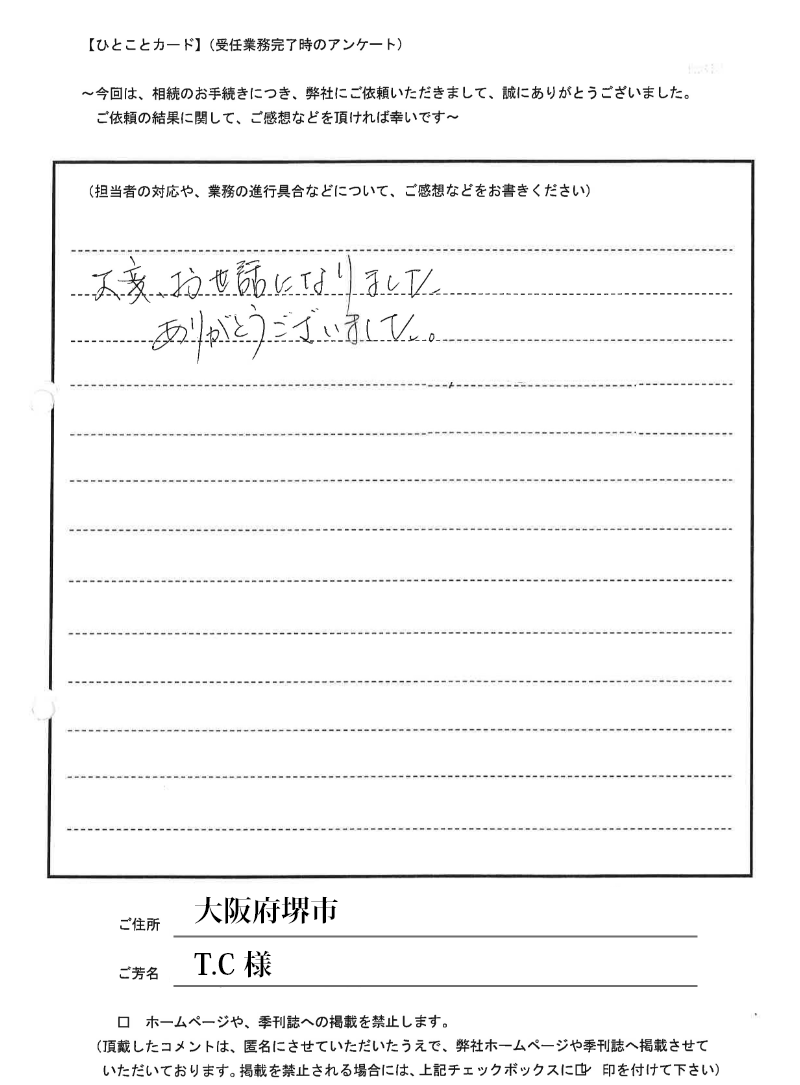 【ひとことカード】(受任業務完了時のアンケート)
～今回は、相続のお手続きにつき、弊社にご依頼いただきまして、誠にありがとうございました。
ご依頼の結果に関して、ご感想などを頂ければ幸いです～
(担当者の対応や、業務の進行具合などについて、ご感想などをお書きください)
大変、お世話になりました
ありがとうございました。
ご住所 大阪府堺市
ご芳名 T.C 様
□ ホームページや、季刊誌への掲載を禁止します。
(頂戴したコメントは、匿名にさせていただいたうえで、弊社ホームページや季刊誌へ掲載させて
いただいております。掲載を禁止される場合には、上記チェックボックスに☑ 印を付けて下さい)